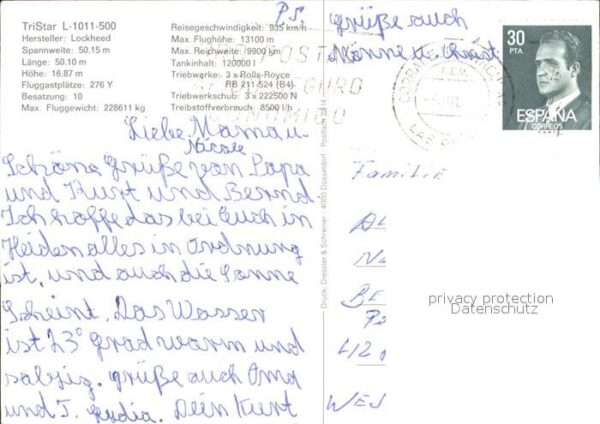 TriStar L-1011-500
Hersteller: Lockheed
Spannweite: 50.15 m
Länge: 50,10 m
Höhe: 16.87 m
Fluggastplätze: 276 Y
Besatzung: 10
Max. Fluggewicht: 228611 kg
Reisegeschwindigkeit: 935 km/h
Max. Flughöhe: 13100 m
Max. Reichweite: 9900 km
Tankinhalt: 120000 l
Triebwerke: 3 x Rolls-Royce
RB 211-524 (B4)
Triebwerkschub: 3 x 222500 N
Treibstoffverbrauch: 8500 l/h
PS.
grüße auch
Liebe Mama u.
Nicole
Schöne Grüße von Papa
und Kurt und Bernd
Ich hoffe das bei Euch in
Heiden alles in Ordnung
ist, und auch die Sonne
Scheint. Das Wasser
ist 23° grad warm und
salzig. grüße auch Oma
und T. Lydia. Dein Kurt
Druck: Dressler & Schreiner · 4000 Düsseldorf
30
PTA
ESPAÑA
CORREOS
Familie
AL
N
BE
Po
412
WES
privacy protection
Datenschutz